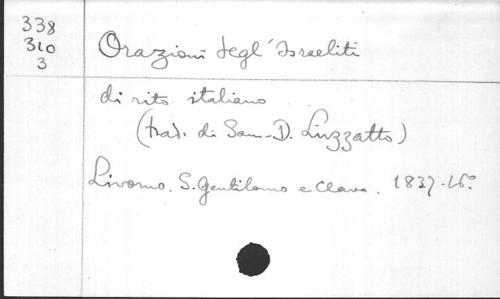 338
310
3
Orazioni degl' Israeliti
di rito italiano
(trad. di Sam-D. Luzzatto)
Livorno. S. Gentilomo e Clava. 1837-16°